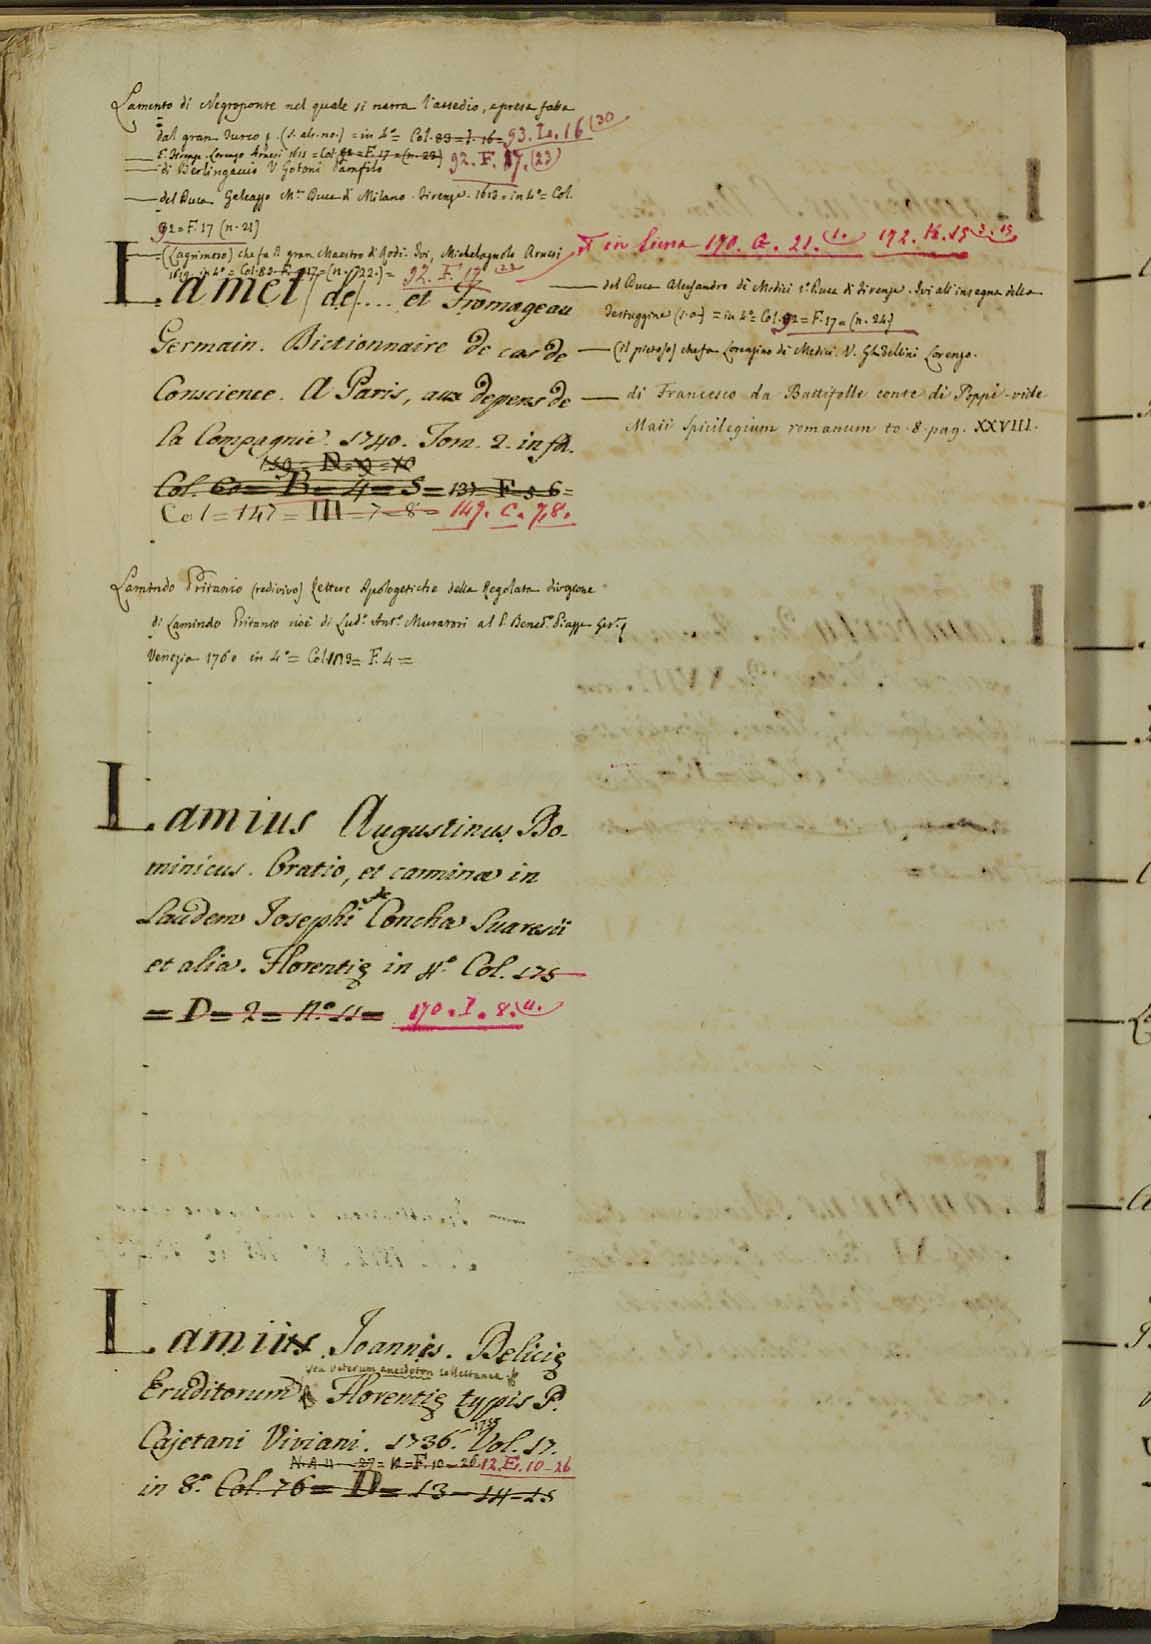 Lamento di Negroponte nel quale si narra l'assedio, e presa fatta
dal gran Turco (s. al. no.) = in 4.° = Col. 83 = I. 16 = 93. L. 16 (30
Firenze. Lorenzo Arnesi 1615 = Col. 92 = F. 17 = (n. 23) 92. F. 17. (23)
— di Berlingaccio V Gotoni Panfilo
— del Duca Galeazzo Duca di Milano. Firenze. 1613. in 4.° = Col.
92 = F. 17 (n. 21)
— (Lagrimoso) che fa il gran Maestro di Rodi. Ivi, Michelagnolo Arnesi
1619. in 4.° = Col. 83 F. 17 = (n. 22.) = 92. F. 17 22
Lamet (de) .... et Fromageau
Germain. Dictionnaire de cas de
Conscience. A Paris, aux depens de
la Compagnie. 1740. Tom. 2. in fol.
150 = D = 9 = 10
Col. 60 = B = 4 = 5 = 137 F 5 6 =
Col = 147 = III = 7 - 8 = 149. C. 7,8.
Lamindo Pritanio (redivivo) Lettere Apologetiche della Regolata divozione
di Lamindo Pritanio cioè di Lud.° Ant.° Muratori al P. Bened.° Piazza
Venezia 1760 in 4.° = Col. 113 = F. 4 =
Lamius Augustinus Do-
minicus. Oratio, et carmina in
Laudem Josephi de Concha Suaresii
et alia. Florentię in 4.° Col. 175
= D = 2 = N.° 11 = 170. I. 8. 11.
Lamius Joannes. Delicię
seu veterum anecdoton collectanea
Eruditorum Florentię typis P.
Cajetani Viviani. 1736. Vol. 17.
27 = 12 = F. 10 - 26 12. E. 10 - 26
in 8.° Col. 76 = D = 13 - 14 - 15
in Siena 170. G. 21. 1. 172. K. 15 2. 15
— del Duca Alessandro di Medici 1.° Duca di Firenze. Ivi all'insegna della
Testuggine (s. a.) = in 4.° Col. 92 = F. 17 = (n. 24)
— (il pietoso) che fa Lorenzino di Medici. V. Ghibellini Lorenzo.
— di Francesco da Battifolle conte di Poppi. vide
Maii Spicilegium romanum to. 8. pag. XXVIII.